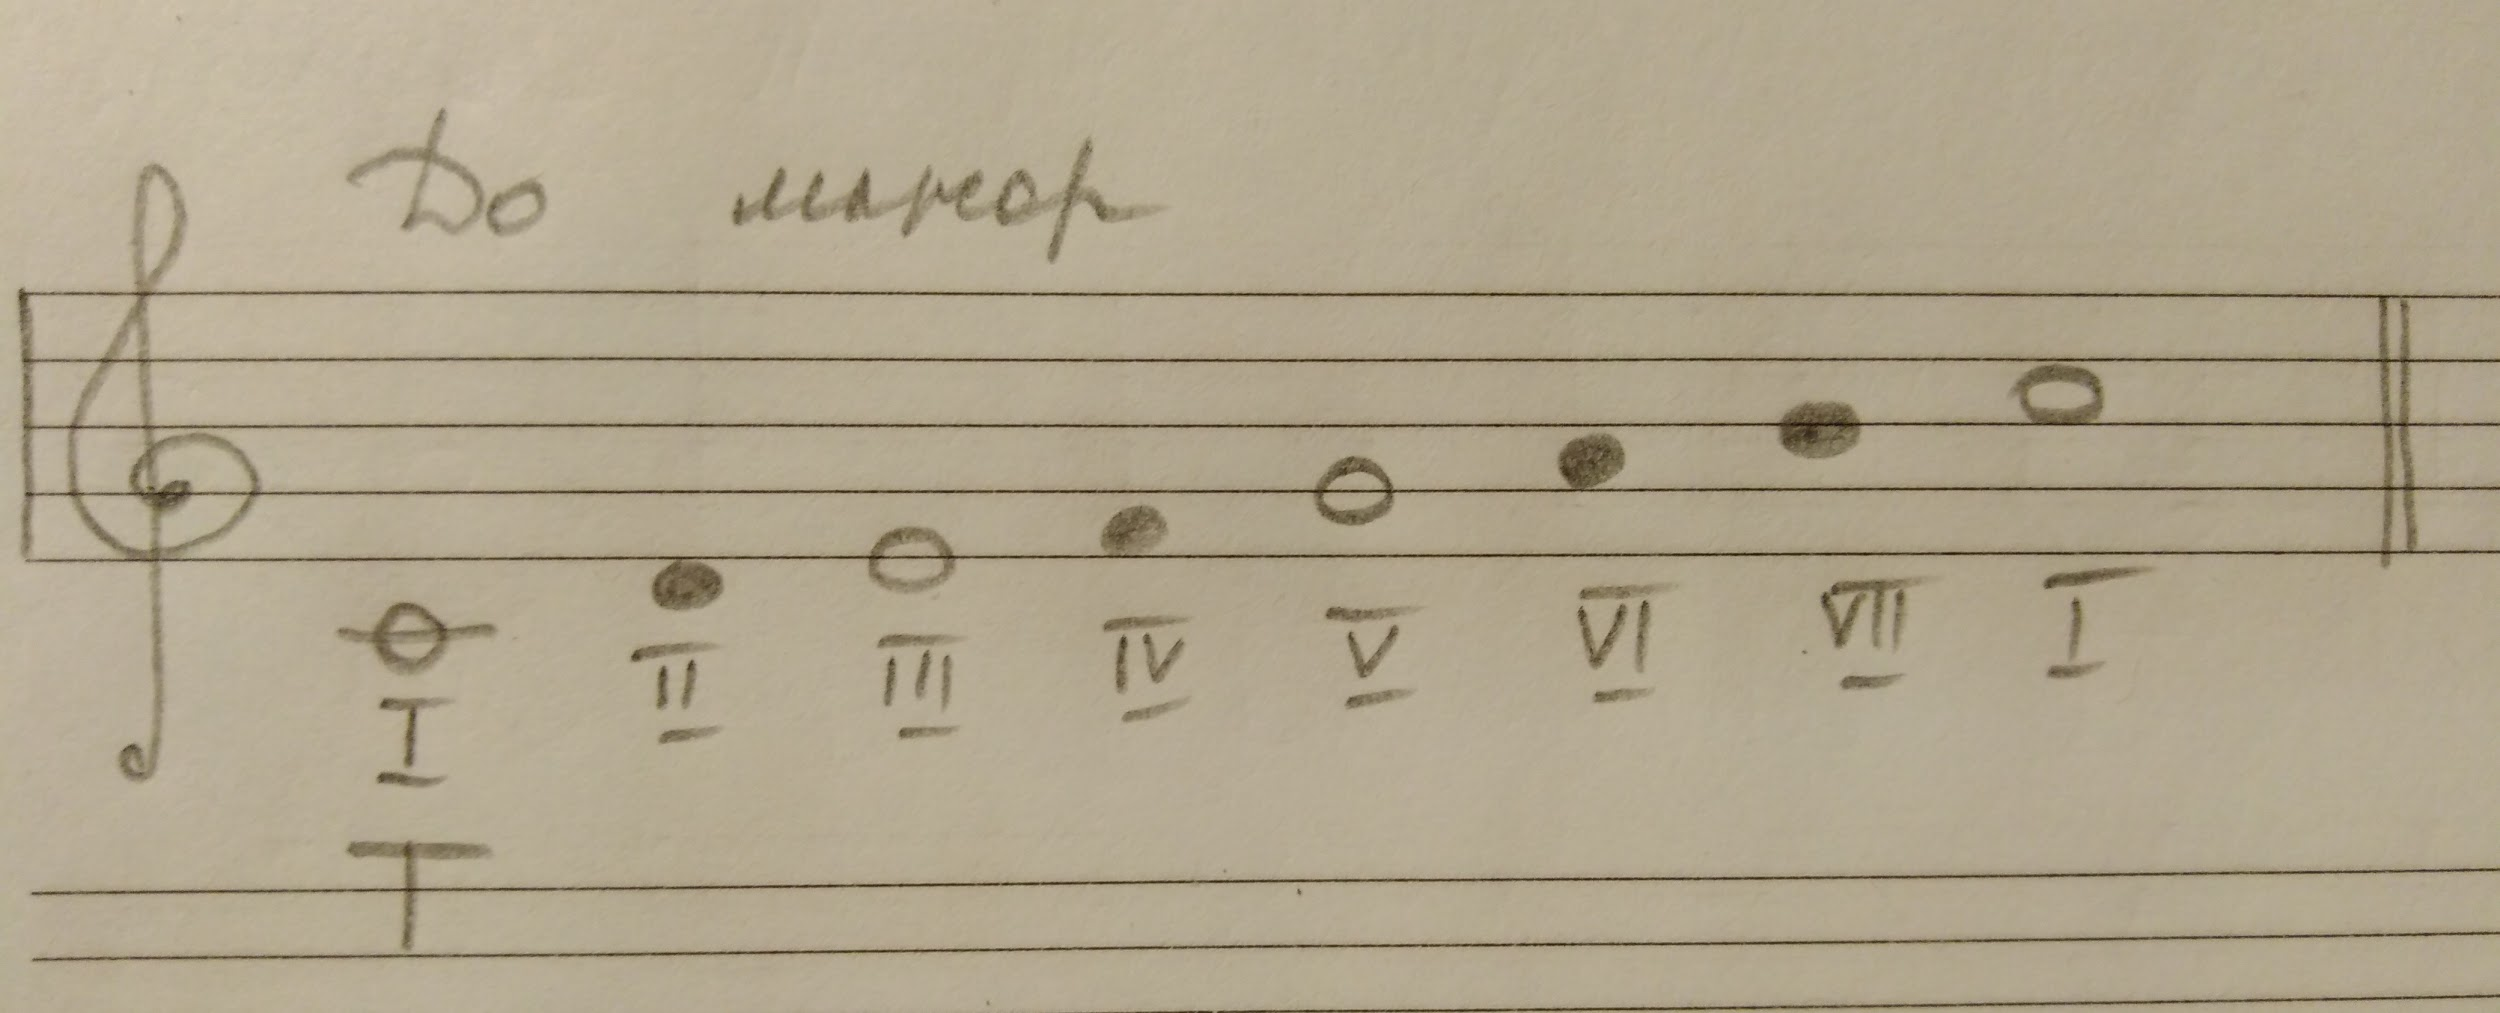 До мажор
I II III IV V VI VII I
T